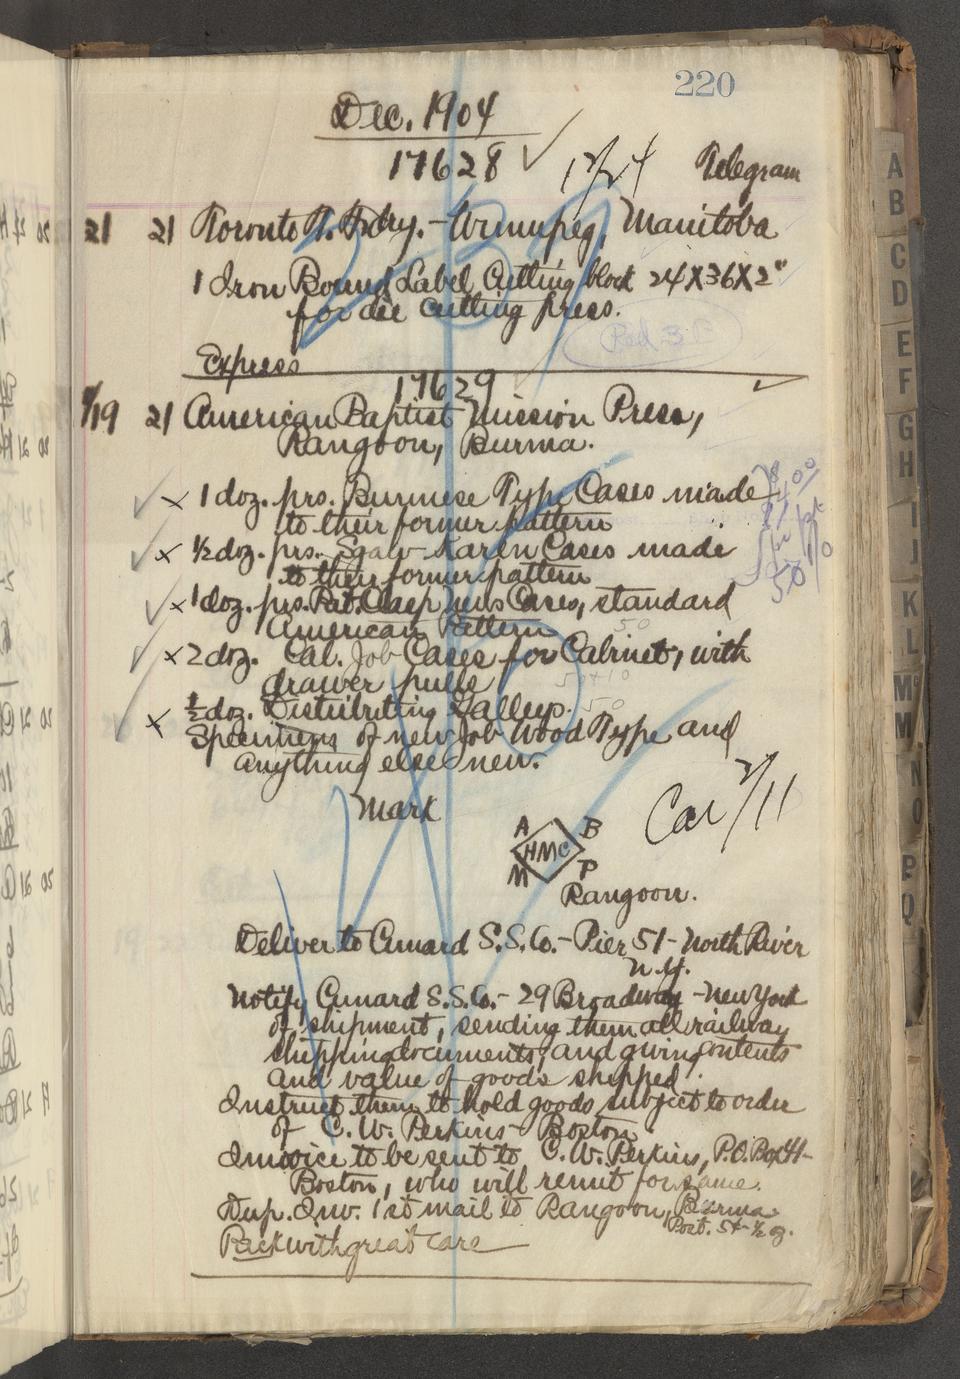 220
Dec. 1904
17628 Telegram
21 21 Toronto T. Fdry. - Winnipeg, Manitoba
1 Iron Bound Label Cutting block 24X36X2"
for die cutting press.
Express
17629
21 American Baptist Mission Press,
Rangoon, Burma.
x 1 doz. prs. Burmese Type Cases made
to their former pattern
x ½ doz. prs. Sgaw Karen Cases made
to their former pattern
x 1 doz. prs. Pat. Clasp News Cases, standard
American Pattern
x 2 doz. Cal. Job Cases for Cabinet, with
drawer pulls
x ½ doz. Distributing Galleys.
Specimens of new Job Wood Type and
anything else new.
Mark
Car 2/11
A B
HMC
M P
Rangoon.
Deliver to Cunard S.S. Co. - Pier 51 - North River
N.Y.
Notify Cunard S.S. Co. - 29 Broadway - New York
of shipment, sending them all railway
shipping documents, and giving contents
and value of goods shipped.
Instruct them to hold goods subject to order
of C. W. Perkins - Boston
Invoice to be sent to C. W. Perkins, P.O. Box H-
Boston, who will remit for same.
Dup. Inv. 1st mail to Rangoon, Burma
Post. 5¢ ½ oz.
Pack with great care
A
B
C
D
E
F
G
H
I
J
K
L
M
M
N
O
P
Q